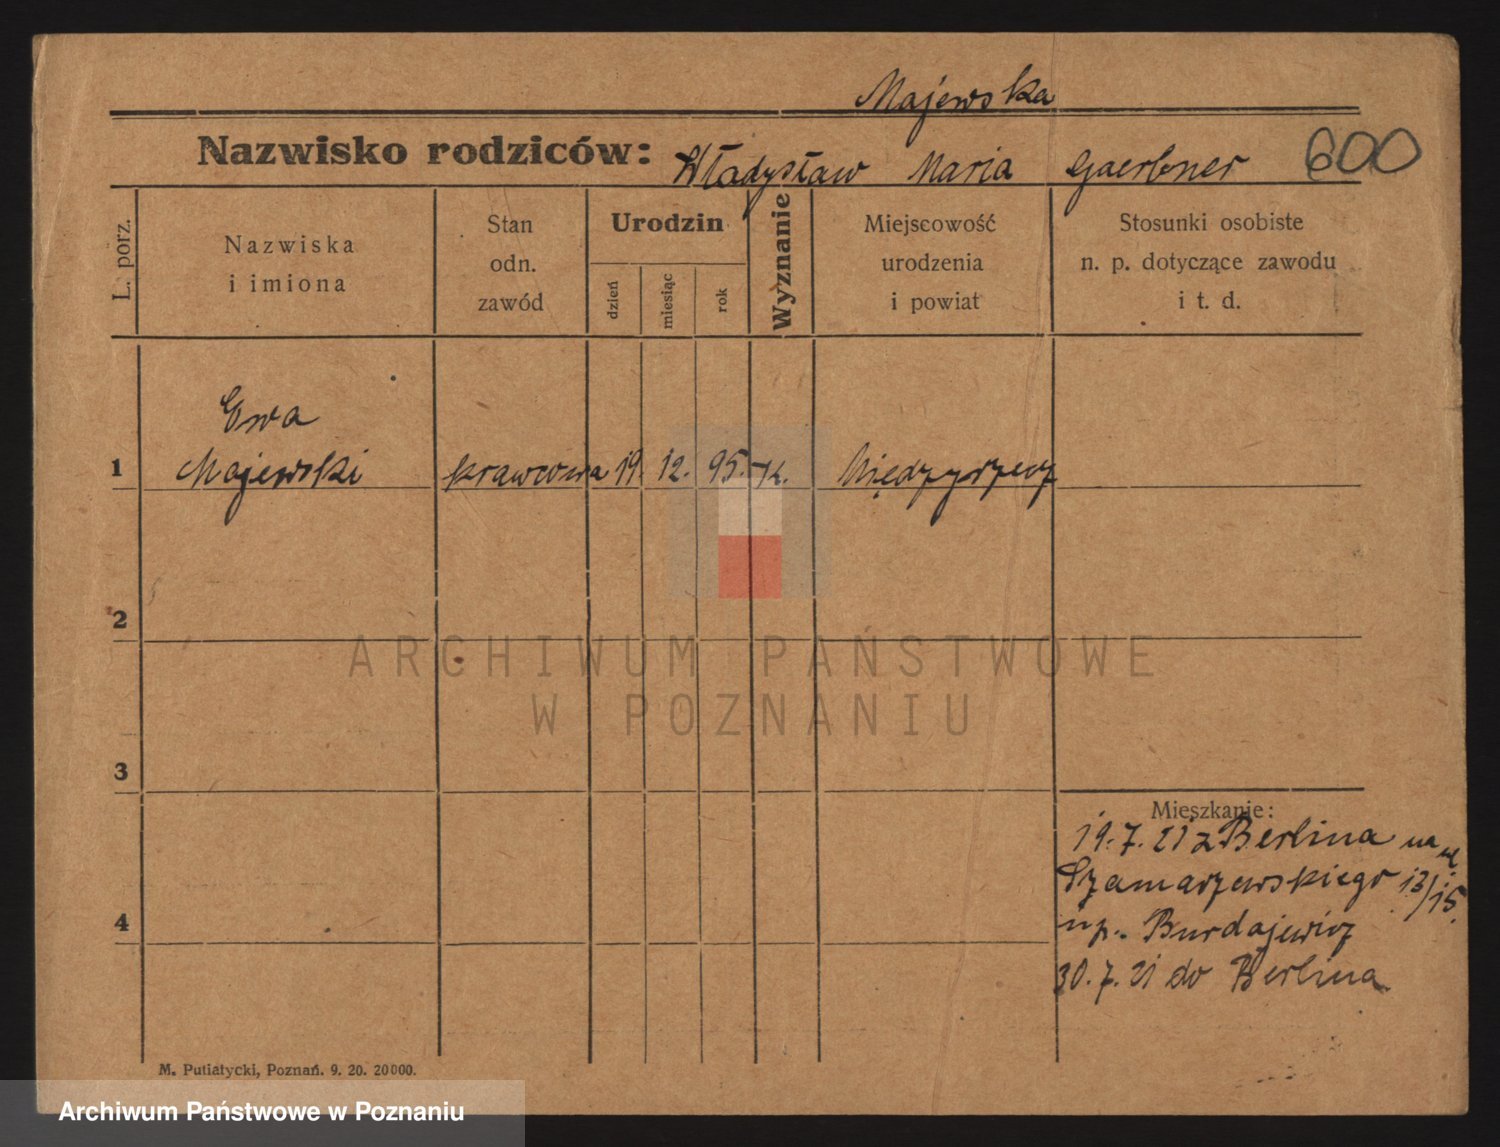 Majewska
Nazwisko rodziców: Władysław Maria Gaerbner 600
L. porz.
Nazwiska
i imiona
Stan
odn.
zawód
Urodzin
dzień
miesiąc
rok
Wyznanie
Miejscowość
urodzenia
i powiat
Stosunki osobiste
n. p. dotyczące zawodu
i t. d.
Ewa
1 Majewski krawcowa 19. 12. 95. K. Międzyrzecz
2
3
4
Mieszkanie:
19.7.21 z Berlina na ul.
Szamarzewskiego 13/15.
u p. Burdajewicz
30.7.21 do Berlina
M. Putiatycki, Poznań. 9. 20. 20000.
ARCHIWUM PAŃSTWOWE
W POZNANIU
Archiwum Państwowe w Poznaniu